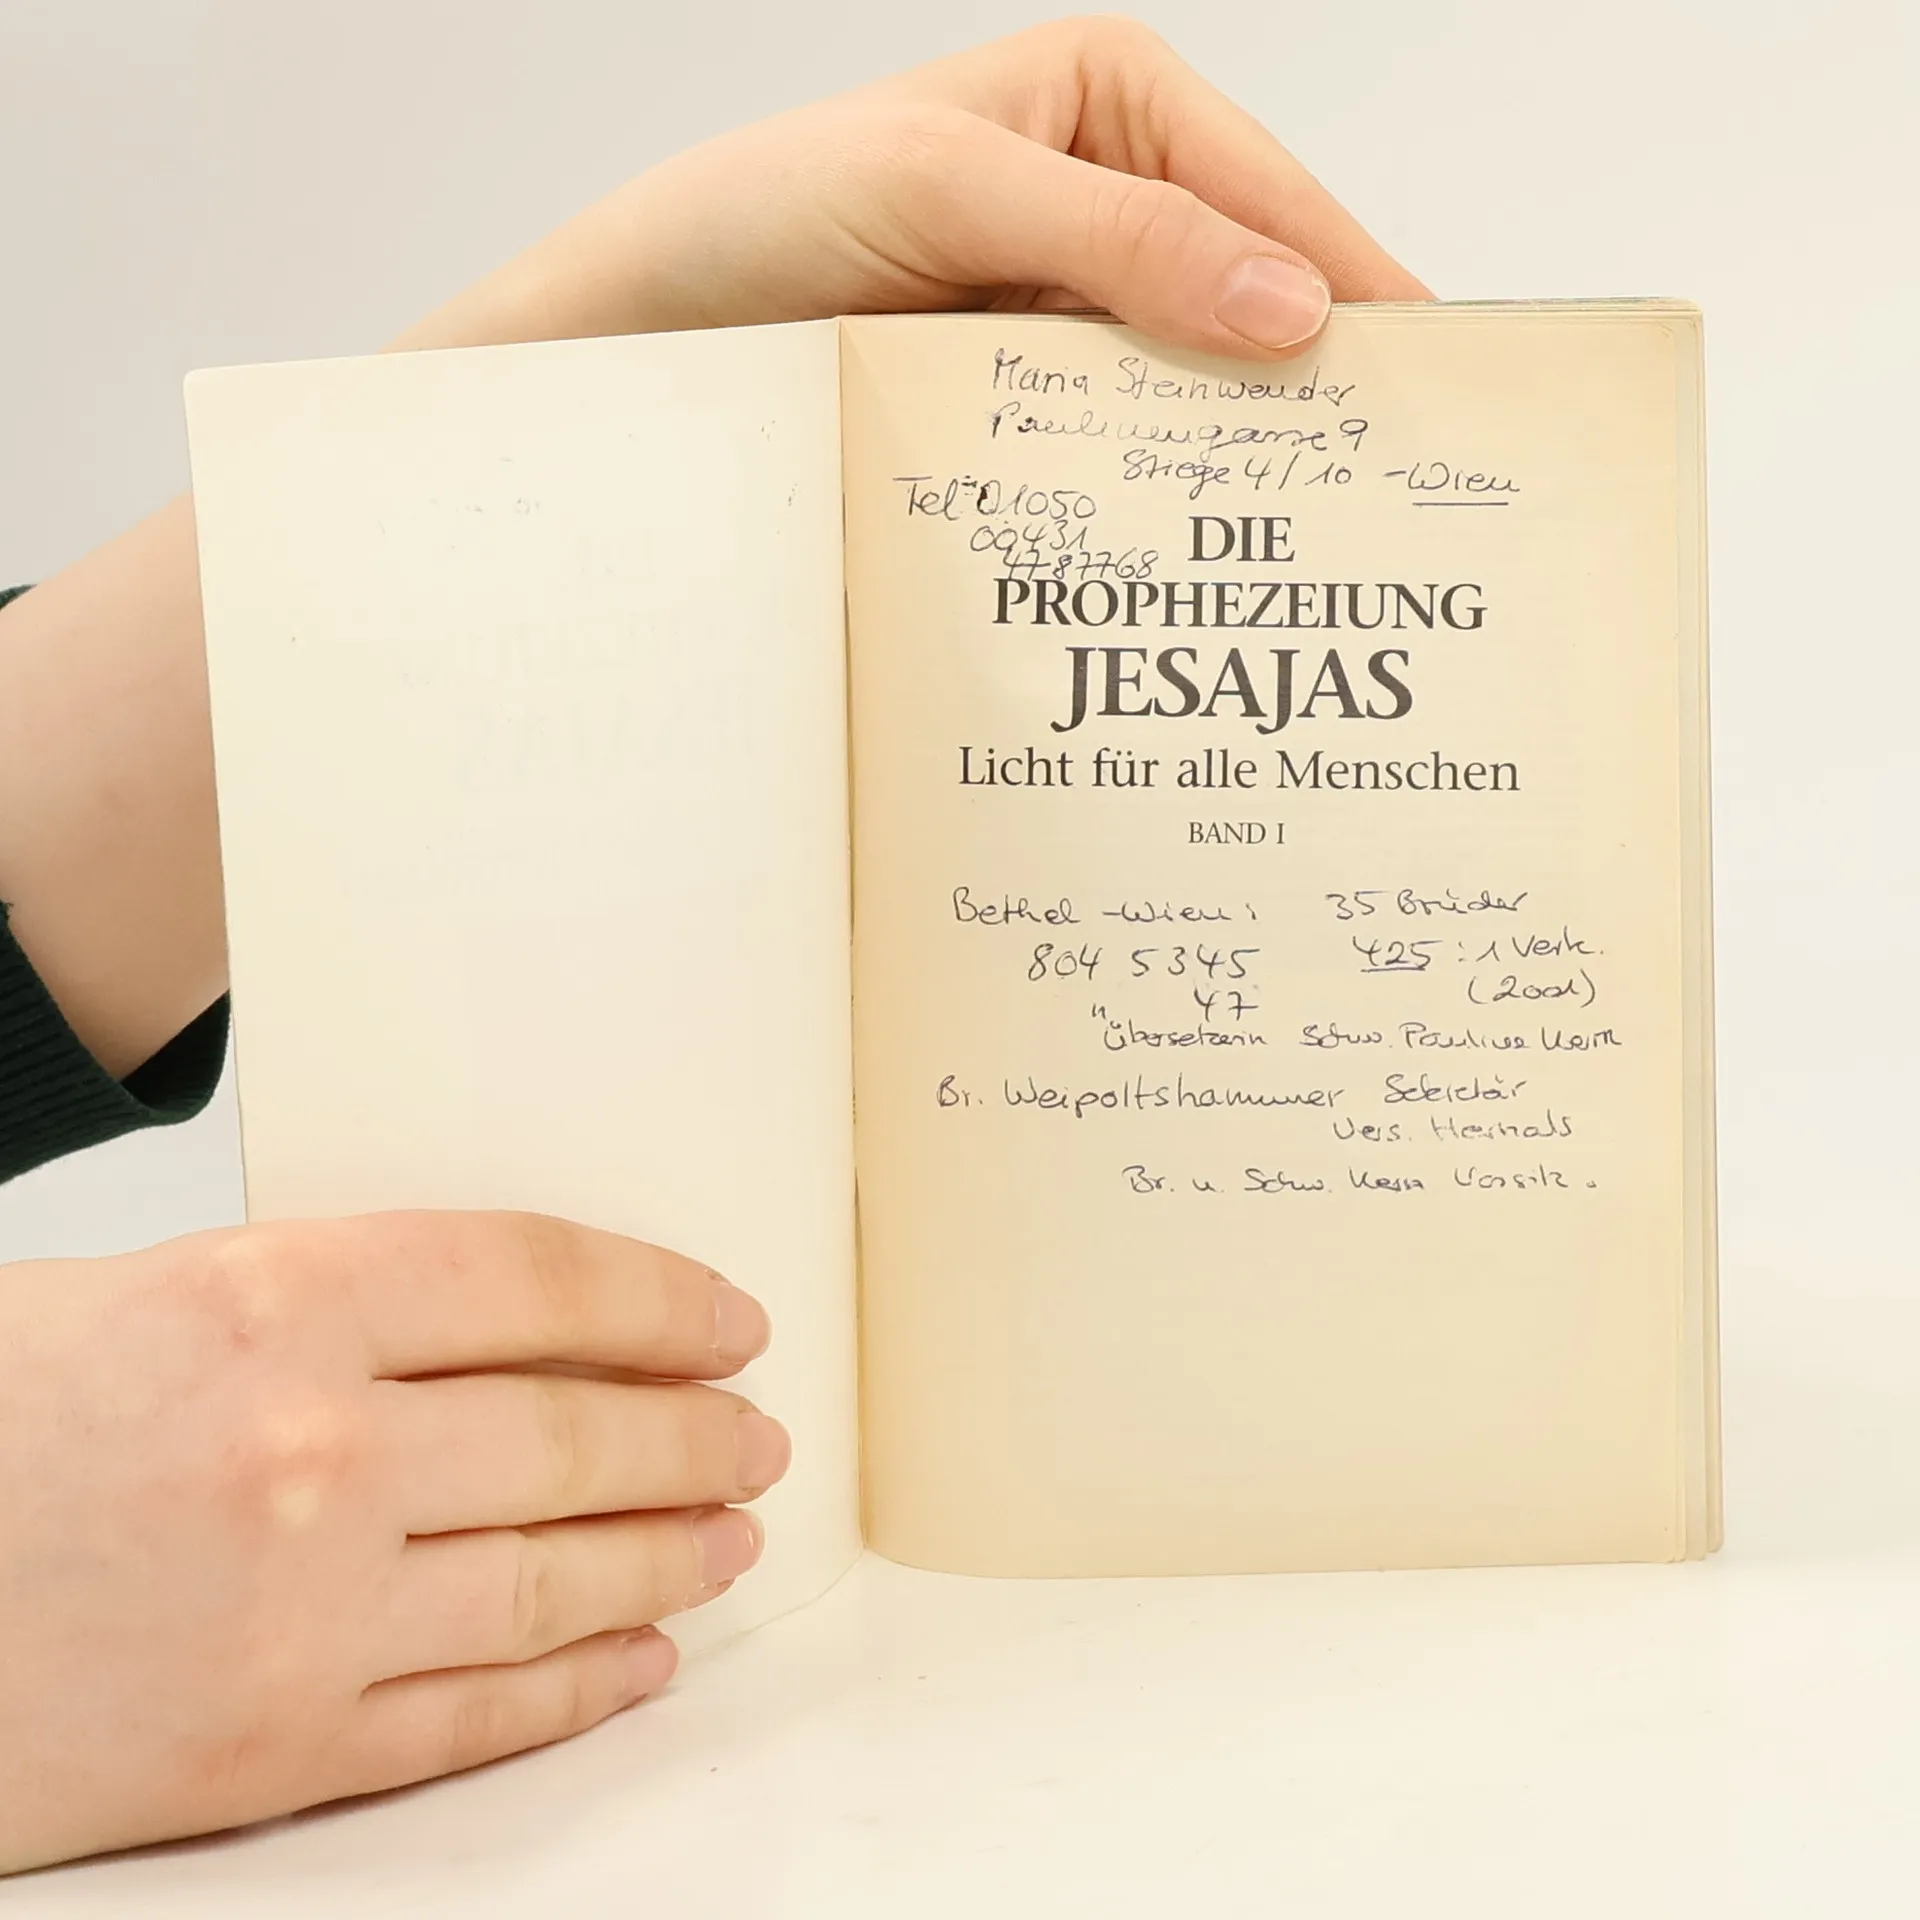 Maria Steinwender
Paulinengasse 9
Stiege 4/10 - Wien
Tel: 01050
00431
4787768
DIE
PROPHEZEIUNG
JESAJAS
Licht für alle Menschen
BAND I
Bethel - Wien: 35 Brüder
804 5345 425 : 1 Verk.
" 47 (2001)
Übersetzerin Schw. Pauline Kern
Br. Weipoltshammer Sekretär
Vers. Hernals
Br. u. Schw. Kern Vorsitz.